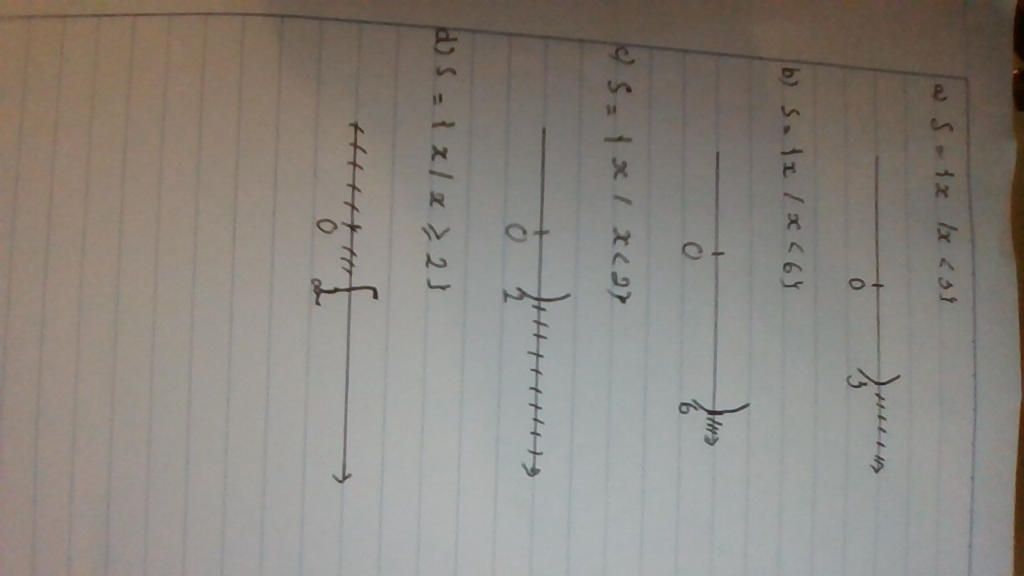 a) S = {x / x < 3}
0 3
b) S = {x / x < 6}
0 6
c) S = { x / x < 2}
0 2
d) S = { x / x ≥ 2 }
0 2